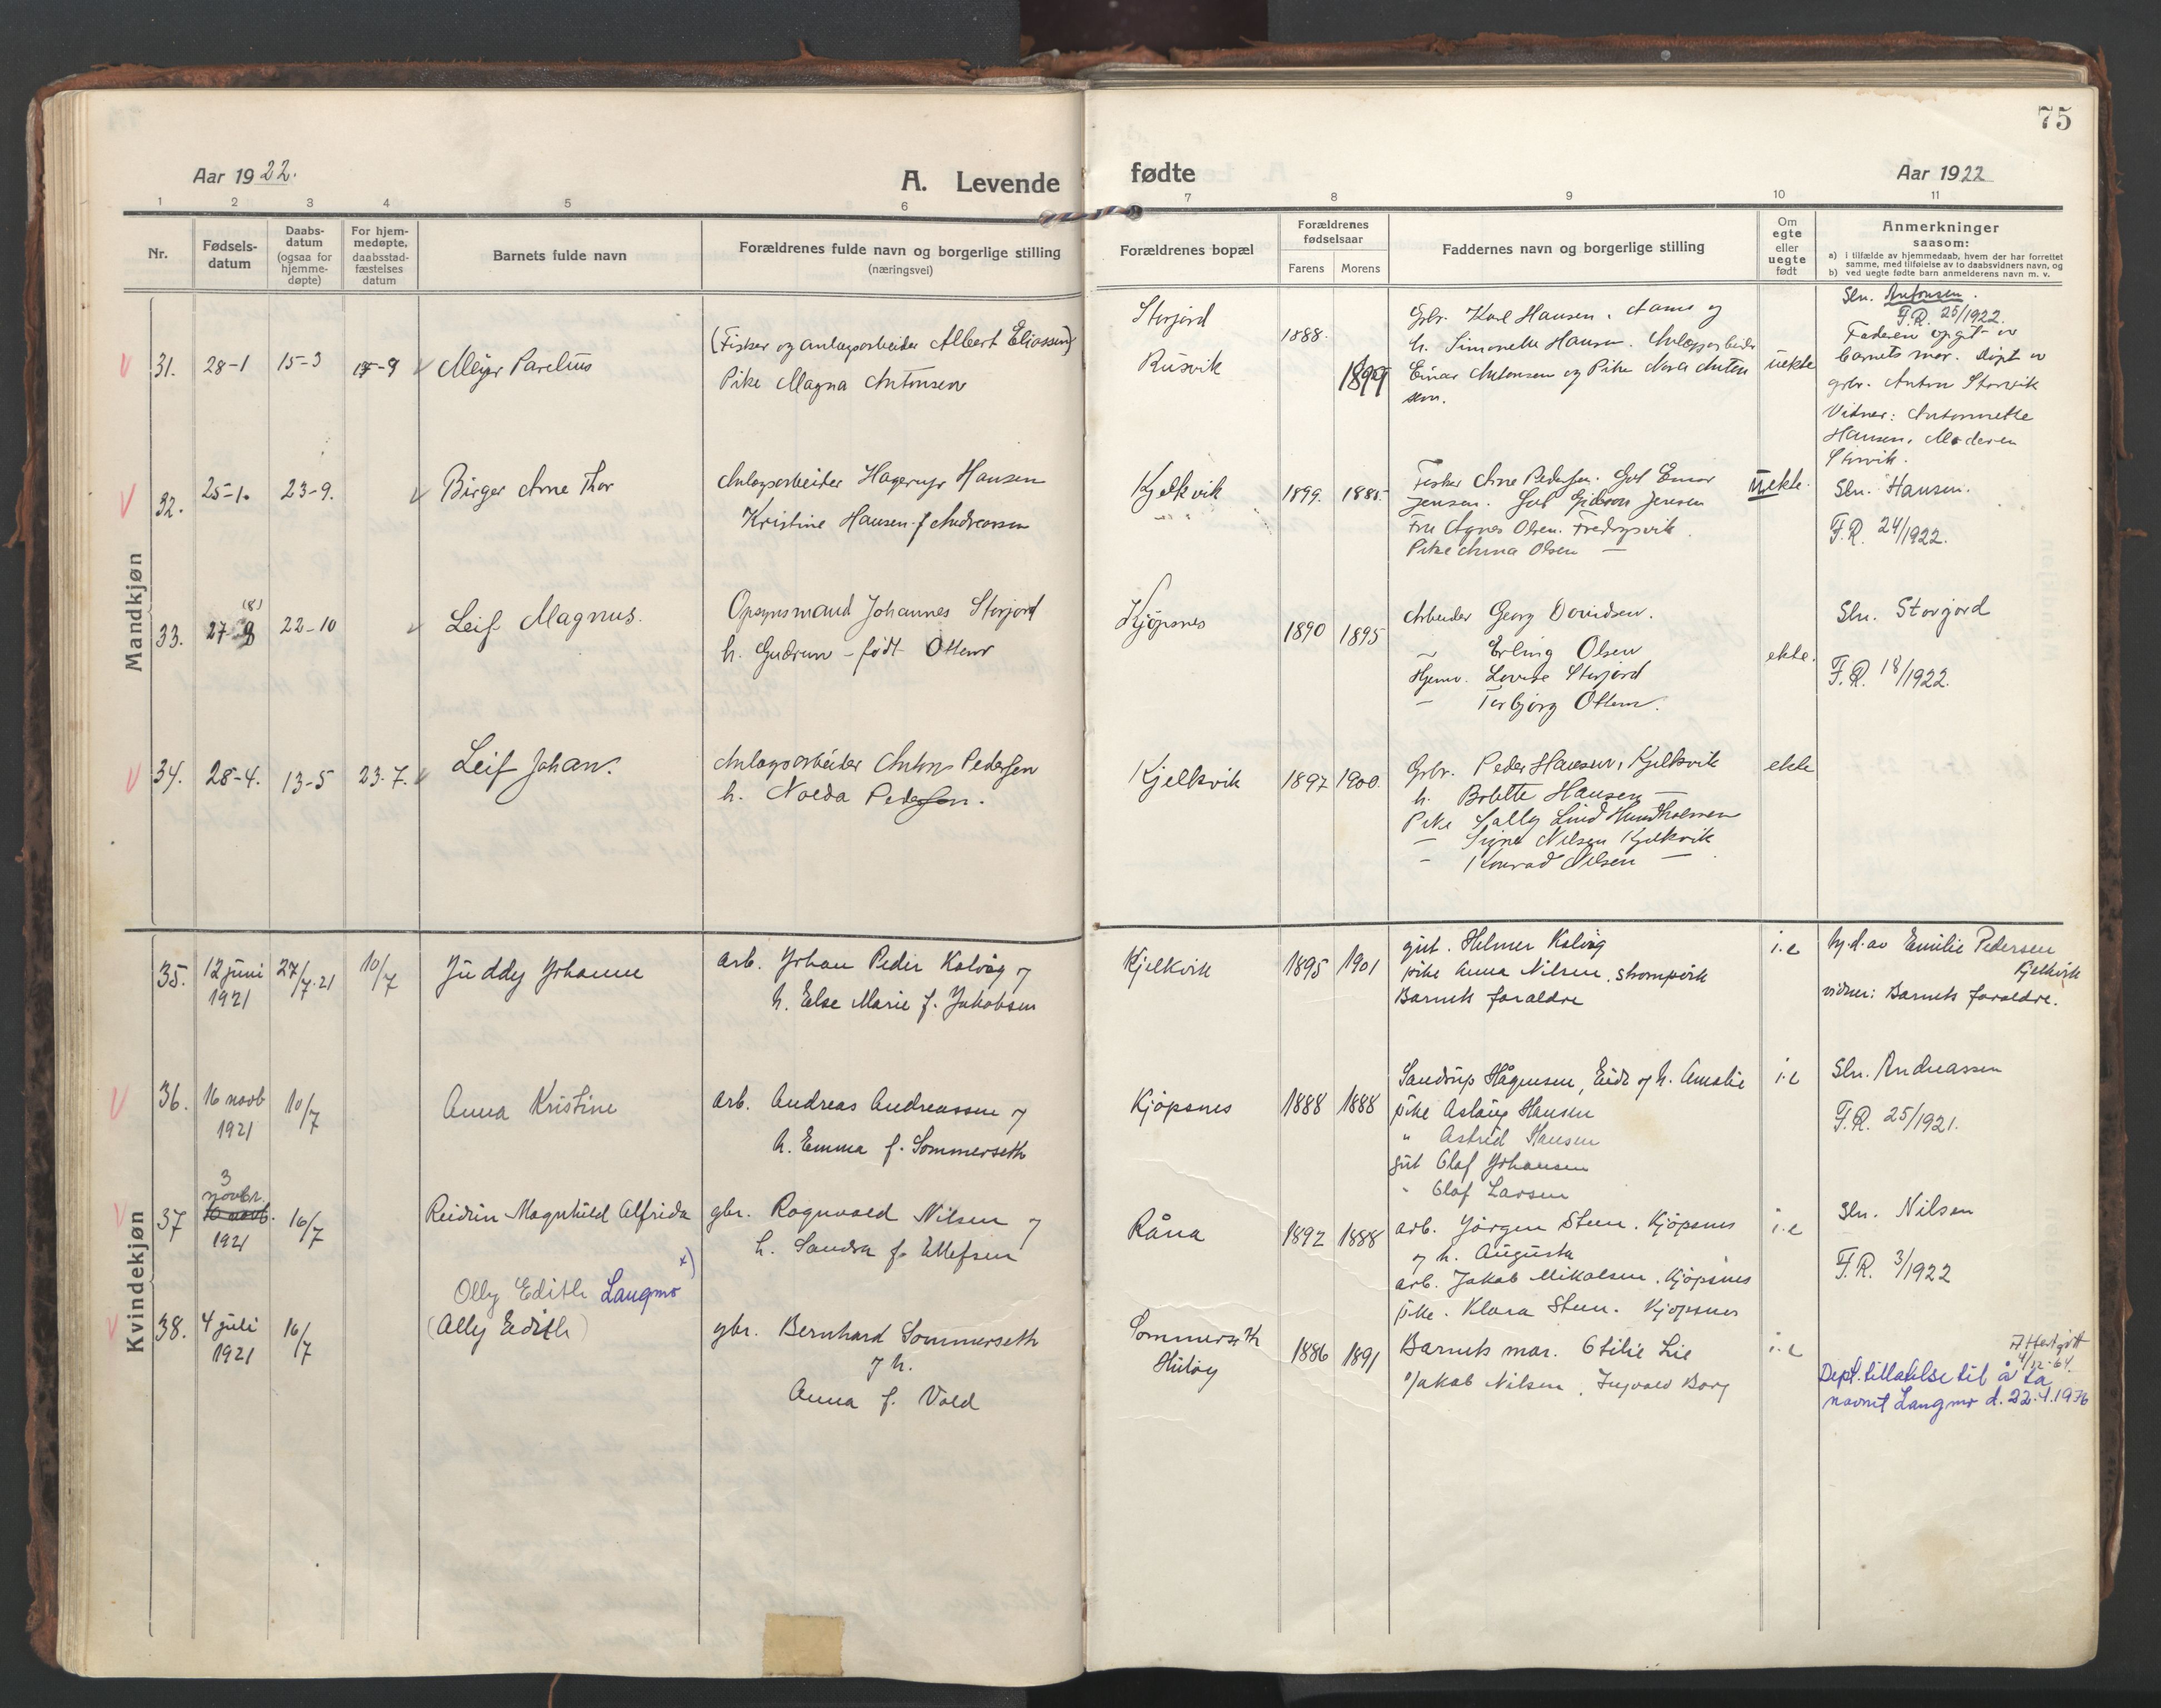 75
Aar 1922.
A. Levende fødte
Aar 1922
1 2 3 4 5 6 7 8 9 10 11
Nr.
Fødsels-
datum
Daabs-
datum
(ogsaa for
hjemme-
døpte)
For hjem-
medøpte,
daabsstad-
fæstelses
datum
Barnets fulde navn
Forældrenes fulde navn og borgerlige stilling
(næringsvei)
Forældrenes bopæl
Forældrenes
fødselsaar
Farens Morens
Faddernes navn og borgerlige stilling
Om
egte
eller
uegte
født
Anmerkninger
saasom:
a) i tilfælde av hjemmedaab, hvem der har forrettet
samme, med tilføielse av to daabsvidners navn, og
b) ved uegte fødte barn anmelderens navn m. v.
Mandkjøn
31. 28-1 15-3 15-9
Meyer Parelius
(Fisker og anlægsarbeider Albert Eliassen)
Pike Magna Antonsen
Storjord
Rusvik
1888.
1899
Grbr. Karl Hansen, og
h. Simonette Hansen. Anlægsarbeider
Einar Antonsen og Pike Nora Anton
sen.
uekte
Sln. Antonsen.
F.R. 25/1922.
Faderen opgit av
barnets mor. Døpt av
grbr. Anton Storvik
Vidner: Antonnette
Hansen, Moderen
Storvik.
32. 25-1. 23-9.
Birger Arne Thor
Anlægsarbeider Hagerup Hansen
Kristine Hansen f Andreassen
Kjelkvik
1899. 1885.
Fisker Arne Pedersen. Gut Einar
Jensen. Gut Gideon Jensen
Fru Agnes Olsen. Fredagsvik.
Pike Anna Olsen —
uekte.
Sln. Hansen.
F.R. 24/1922.
33. 27-8 (8) 22-10
Leif Magnus.
Opsynsmand Johannes Storjord
h. Gudrun - født Ottem
Kjøpsnes
1890 1895
Arbeider Georg Davidsen.
— Erling Olsen
Hjemv. Lovise Storjord
— Torbjørg Ottem.
ekte.
Sln. Storjord
F.R. 18/1922.
34. 28-4. 13-5 23-7.
Leif Johan.
Anlægsarbeider Anton Pedersen
h. Pedersen.
Kjelkvik
1897 1900.
Grbr. Peder Hansen, Kjelkvik
h. Bolette Hansen —
Pike Sally Lind Hundholmen
— Signe Nilsen Kjelkvik
— Konrad Nilsen —
ekte
Kvindekjøn
35. 12 juni
1921
27/7-21 10/7
Juddy Johanne
arb. Johan Peder Kalvåg og
h. Else Marie f. Jakobsen
Kjelkvik
1895 1901
gut. Helmer Kalvåg
pike Anna Nilsen, Strompvik
Barnets foraldre
i.e
hj.d. av Emilie Pedersen
Kjelkvik
vidner: Barnets foraldre.
36. 16 novb
1921
10/7
Anna Kristine
arb. Andreas Andreassen og
h. Emma f. Sommerseth
Kjøpsnes
1888 1888
Sandrup Hågensen, Eide og h. Amalie
pike Aslaug Hansen
" Astrid Hansen
gut Olaf Johansen
" Olaf Larsen
i.e
Sln. Andreassen
F.R. 25/1921.
37 3
novbr.
10 novb.
1921
16/7
Reidun Magnhild Alfrida
gbr. Rognvald Nilsen og
h. Sandra f. Ellefsen
Råna
1892 1888
arb. Jørgen Steen. Kjøpsnes
og h. Augusta
arb. Jakob Mikalsen. Kjøpsnes
pike. Klara Steen. Kjøpsnes
i.e
Sln. Nilsen
F.R. 3/1922
38. 4 juli
1921
16/7
Olly Edith Langmo x)
(Ally Edith)
gbr. Bernhard Sommerseth
og h.
Anna f. Vold
Sommerseth
Huløy
1886 1891
Barnets mor. Otilie Lie
Jakob Nilsen, Ingvald Borg
i.e
4/12-64.
Dept. tillatelse til å ta
navnet Langmo d. 22.4.1936